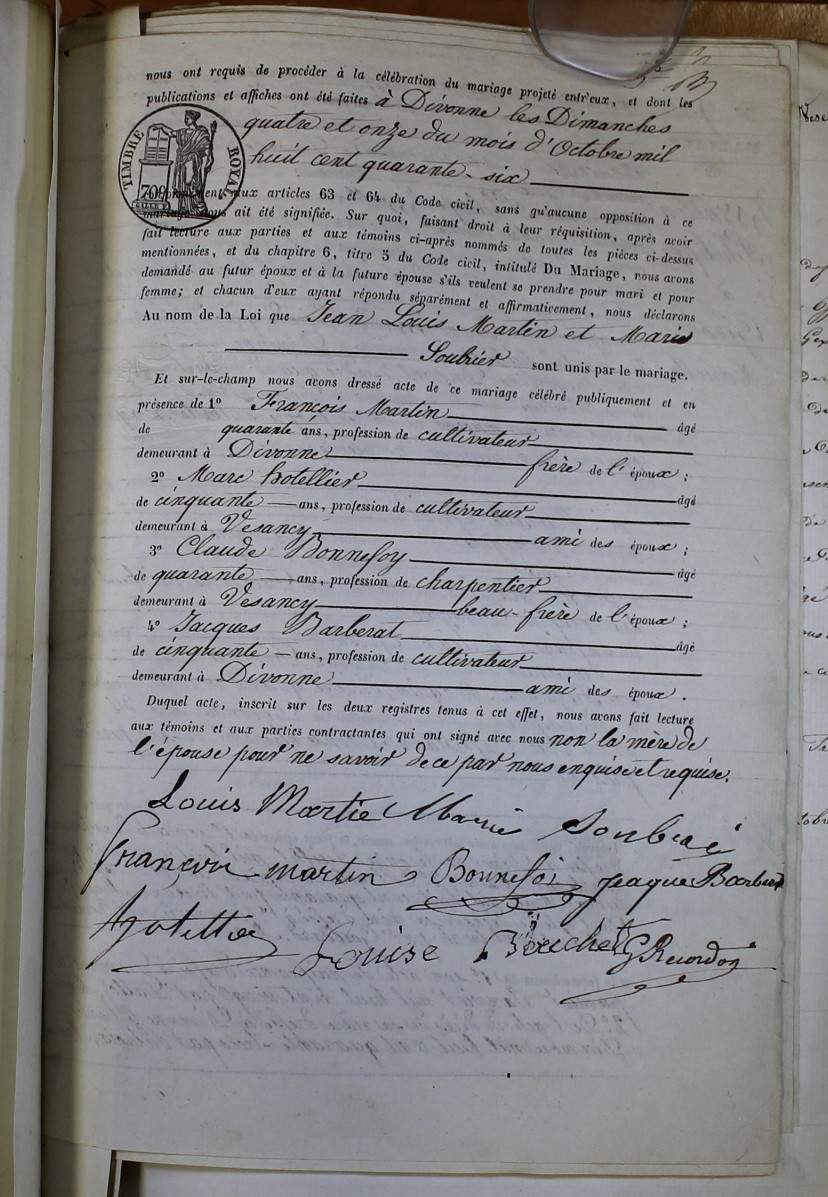 nous ont requis de procéder à la célébration du mariage projeté entr'eux, et dont les
publications et affiches ont été faites à Divonne les Dimanches
quatre et onze du mois d'Octobre mil
huit cent quarante-six
TIMBRE ROYAL
709
Conformément aux articles 63 et 64 du Code civil, sans qu'aucune opposition à ce
mariage nous ait été signifiée. Sur quoi, faisant droit à leur réquisition, après avoir
fait lecture aux parties et aux témoins ci-après nommés de toutes les pièces ci-dessus
mentionnées, et du chapitre 6, titre 5 du Code civil, intitulé Du Mariage, nous avons
demandé au futur époux et à la future épouse s'ils veulent se prendre pour mari et pour
femme; et chacun d'eux ayant répondu séparément et affirmativement, nous déclarons
Au nom de la Loi que Jean Louis Martin et Marie
Soubrier sont unis par le mariage.
Et sur-le-champ nous avons dressé acte de ce mariage célébré publiquement et en
présence de 1º François Martin âgé
de quarante ans, profession de cultivateur
demeurant à Divonne frère de l'époux;
2º Marc hotellier âgé
de cinquante ans, profession de cultivateur
demeurant à Vesancy ami des époux;
3º Claude Bonnefoy âgé
de quarante ans, profession de charpentier
demeurant à Vesancy beau-frère de l'époux;
4º Jacques Barberat âgé
de cinquante ans, profession de cultivateur
demeurant à Divonne ami des époux.
Duquel acte, inscrit sur les deux registres tenus à cet effet, nous avons fait lecture
aux témoins et aux parties contractantes qui ont signé avec nous non la mère de
l'épouse pour ne savoir de ce par nous enquise et requise.
Louis Martin Marie Soubrié
François martin Bonnefoi jeaque Barberat
Louise Bouchet G Recordon